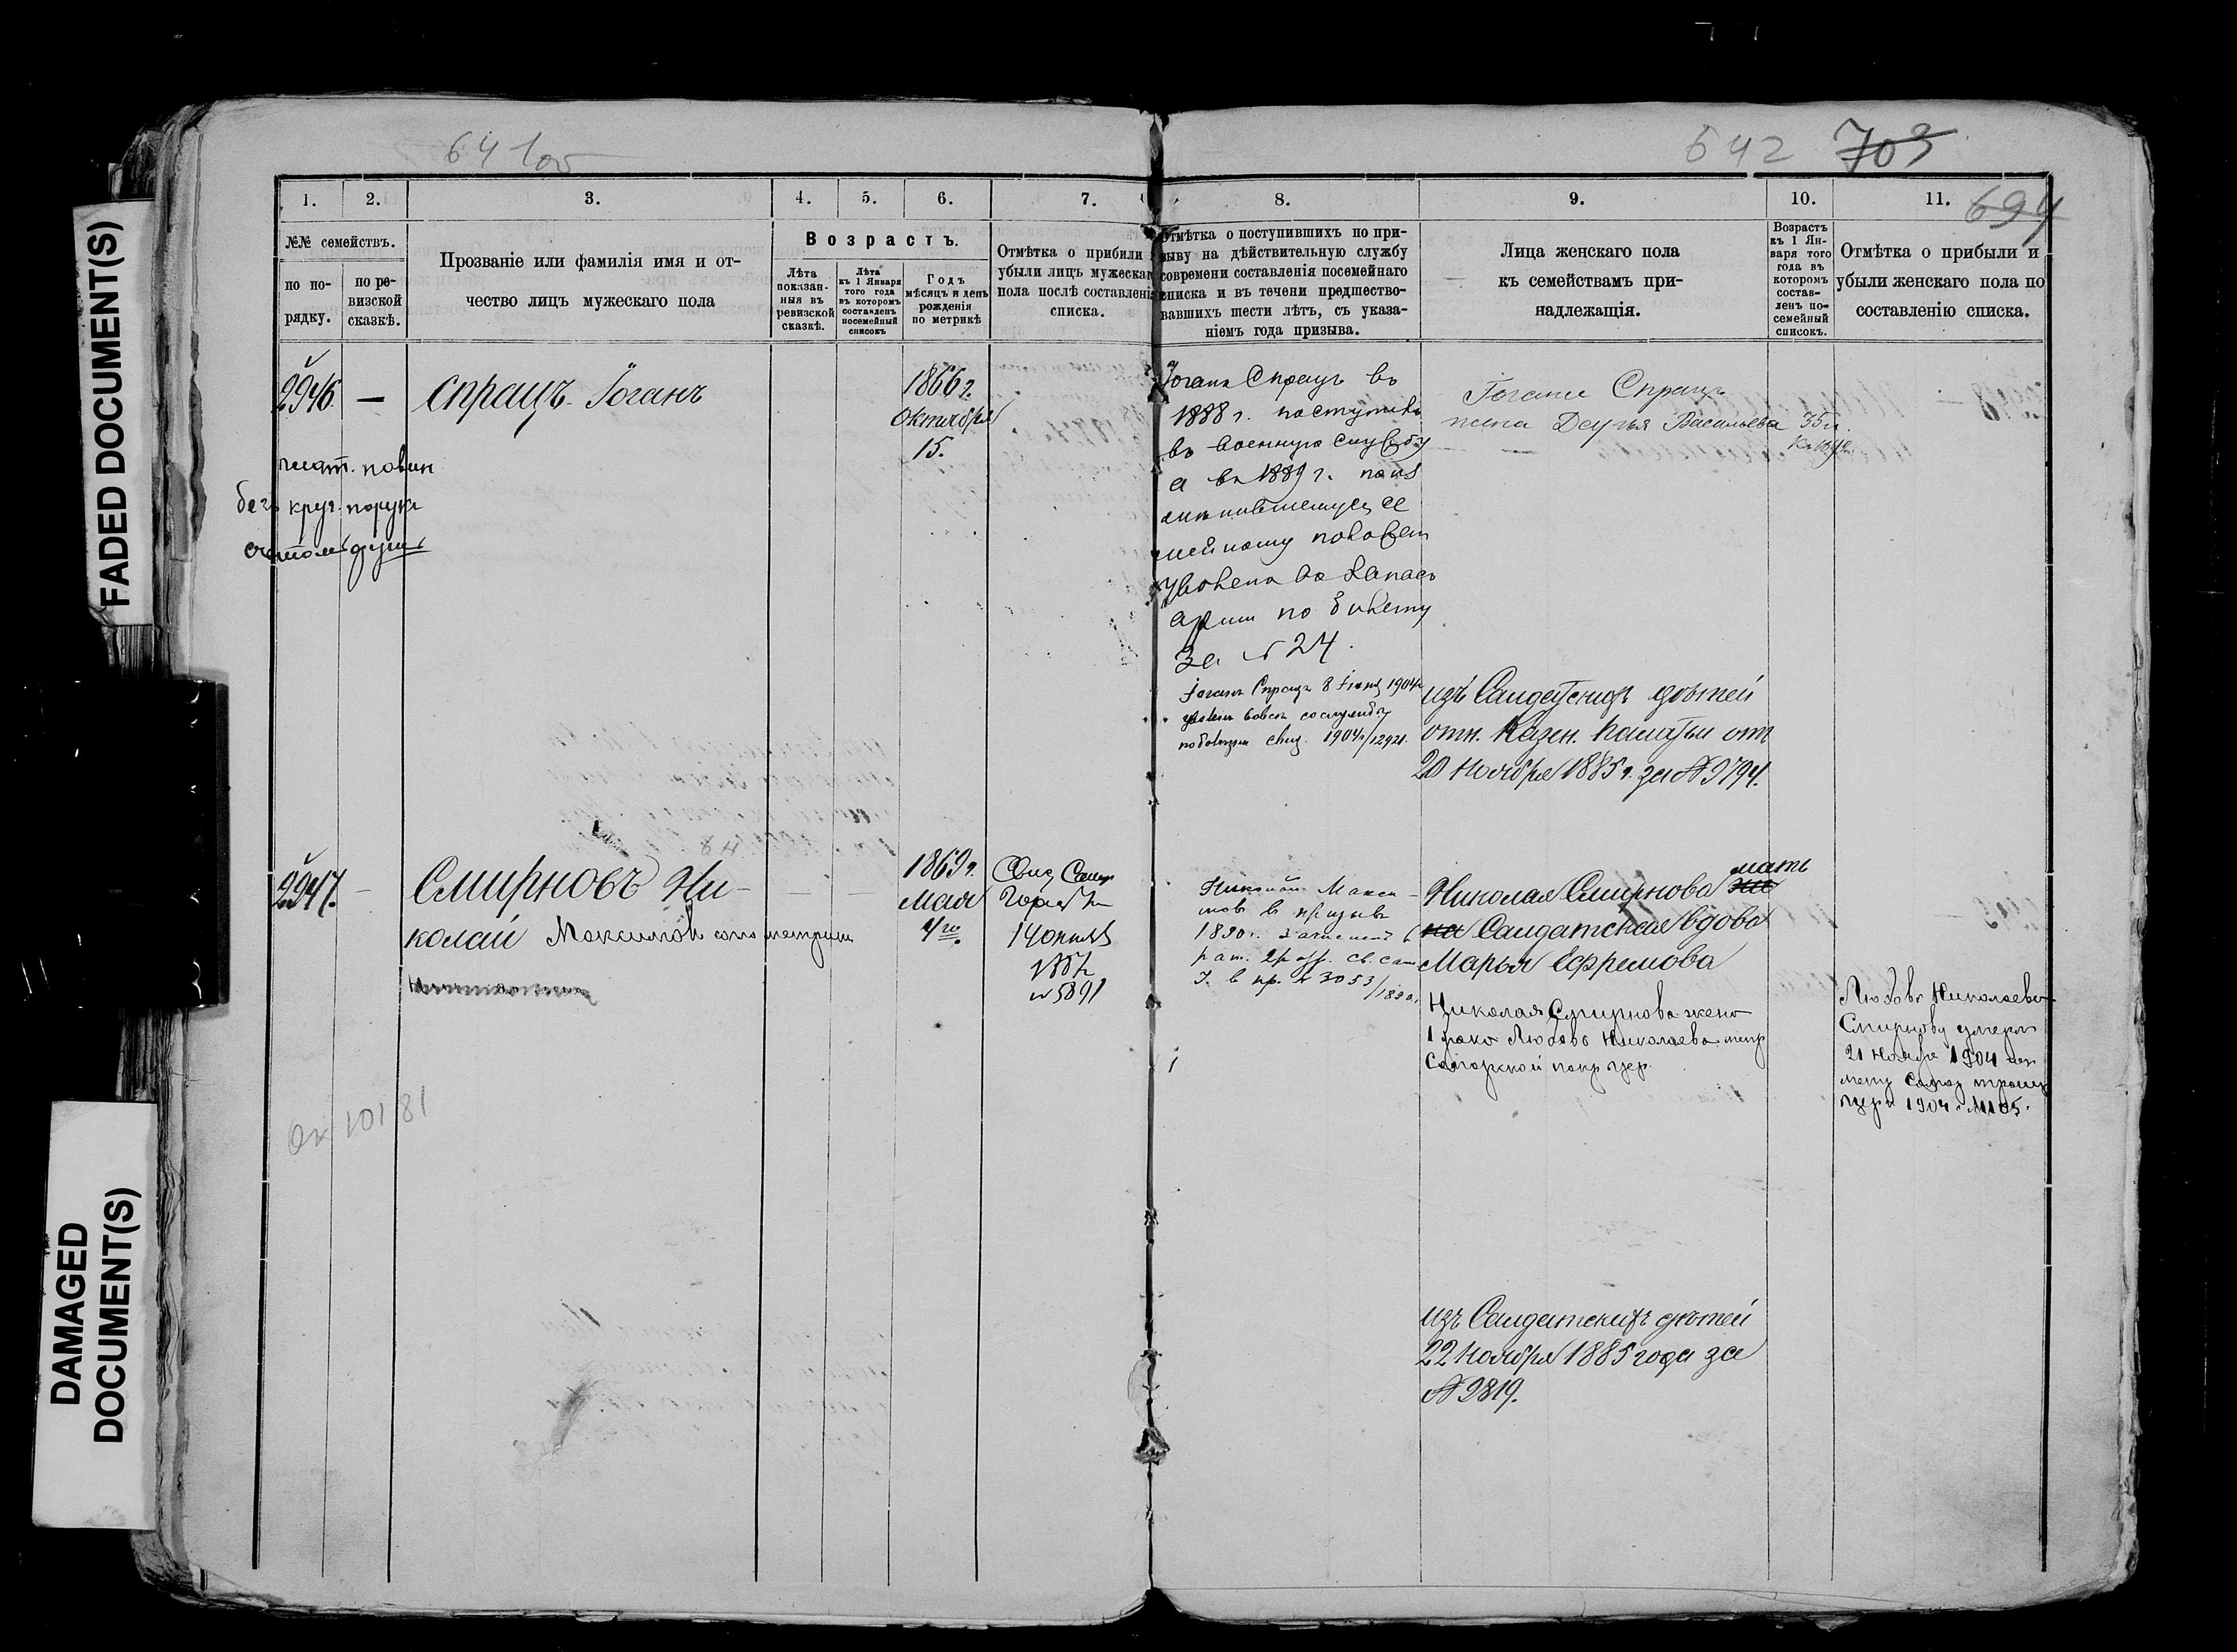 FADED DOCUMENT(S)
DAMAGED
DOCUMENT(S)
641об
642 703
694
1. 2. 3. 4. 5. 6. 7.
№№ семействъ.
по по-
рядку.
по ре-
визской
сказкѣ.
Прозваніе или фамилія имя и от-
чество лицъ мужескаго пола
Возрастъ.
Лѣта
показан-
ныя въ
ревизской
сказкѣ.
Лѣта
къ 1 Января
того года
въ которомъ
составленъ
посемейный
списокъ
Годъ
мѣсяцъ и день
рожденія
по метрикѣ
Отмѣтка о прибыли
убыли лицъ мужескаг
пола послѣ составлені
списка.
8. 9. 10. 11.
Отмѣтка о поступившихъ по при-
зыву на дѣйствительную службу
современи составленія посемейнаго
списка и въ теченіи предшество-
вавшихъ шести лѣтъ, съ указа-
ніемъ года призыва.
Лица женскаго пола
къ семействамъ при-
надлежащія.
Возрастъ
къ 1 Ян-
варя того
года въ
которомъ
состав-
ленъ по-
семейный
списокъ.
Отмѣтка о прибыли и
убыли женскаго пола по
составленію списка.
2946. — Спрацъ Іоганъ
1866 г.
Октября
15.
плат. повин
безъ круг. порук
Іоганъ Спрацъ въ
1888 г. поступилъ
въ военную службу
а въ 1889 г.
уволенъ въ запасъ
арміи по билету
за № 24.
Іоганъ Спрацъ 8 1904
1904г/12921.
Іогана Спрацъ
жена Дарья Васильева 35 л.
изъ Салдатскихъ дѣтей
отн. Казен. Палаты отъ
20 Ноября 1885 г. за № 9794.
2947. — Смирновъ Ни-
колай Максимовъ
1869 г.
Мая
4го.
14 апрѣля
№ 5891
Николай Макси-
мовъ въ призывъ
1890 г. зачисленъ в
рат. 2 разр.
№ 3053/1890г.
Николая Смирнова мать
Салдатская вдова
Марья Ефремова
Николая Смирнова жена
1 брака Любовь Николаева
Любовь Николаева
Смирнова умерла
21 Ноября 1904
церк 1904 г. № 105.
Ок 101 81
изъ Салдатскихъ дѣтей
22 Ноября 1885 года за
№ 9819.